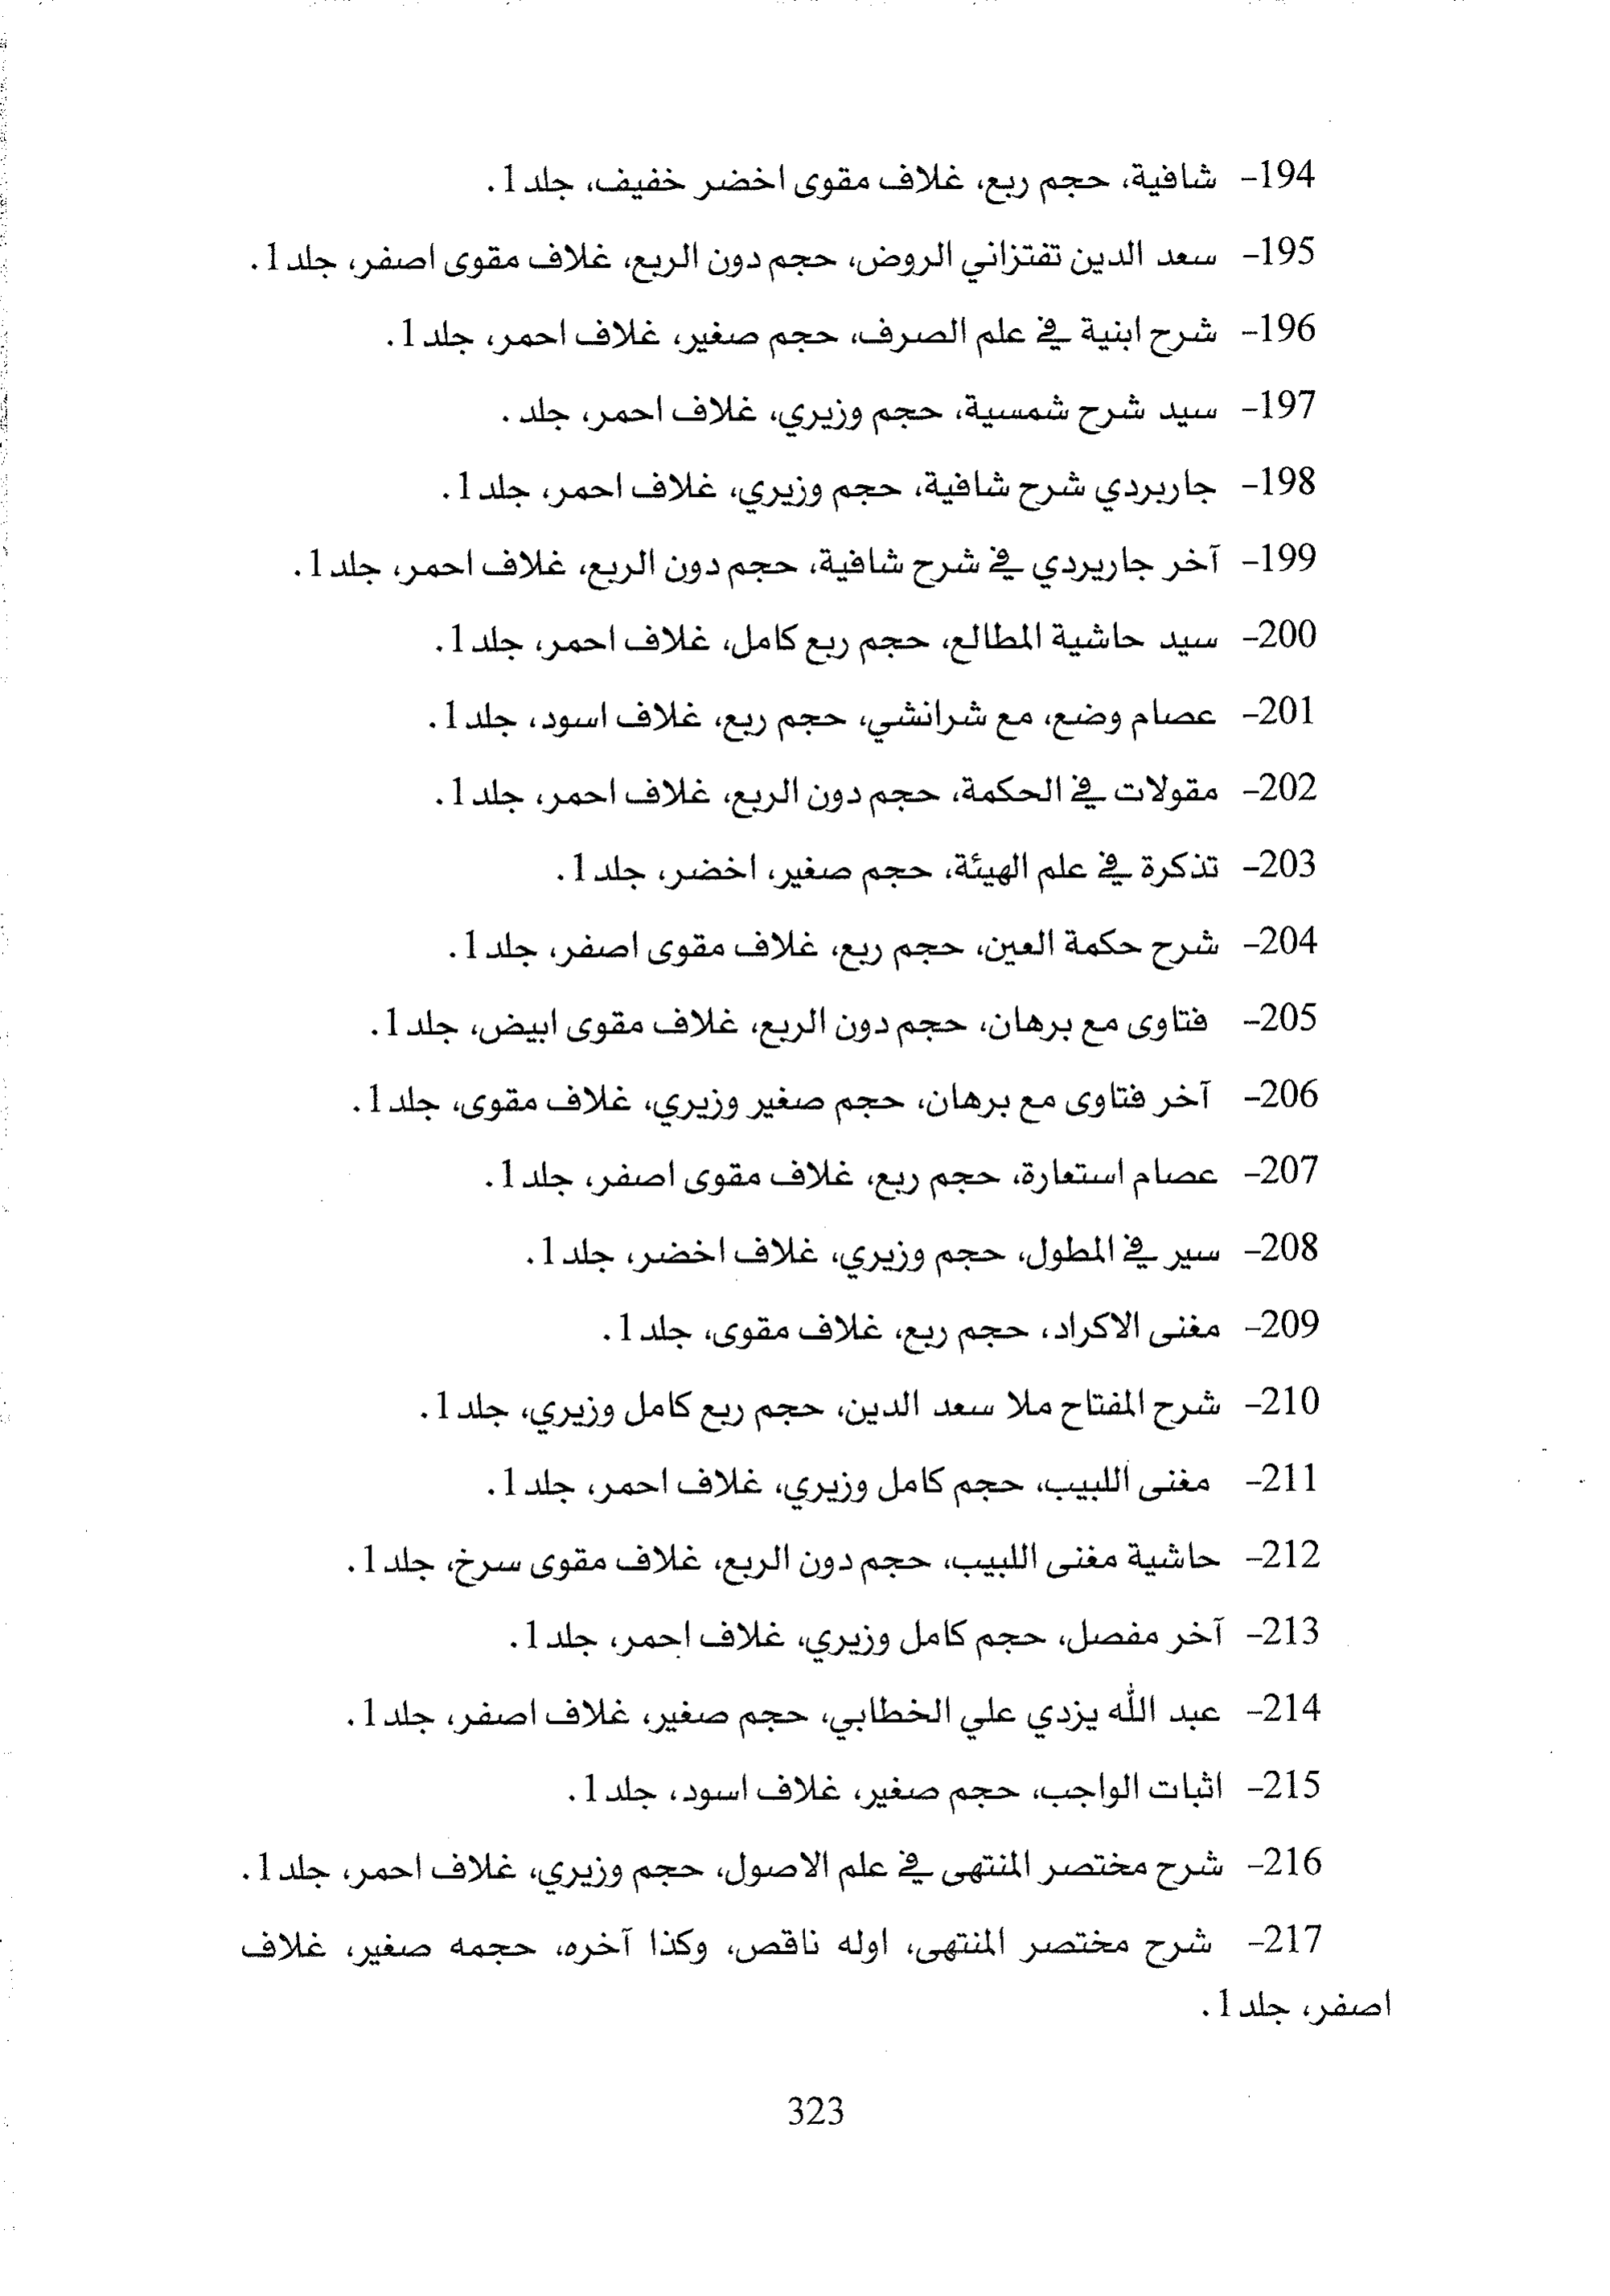 194- شافية، حجم ربع، غلاف مقوى اخضر خفيف، جلد1.
195- سعد الدين تفتزاني الروض، حجم دون الربع، غلاف مقوى اصفر، جلد1.
196- شرح ابنية في علم الصرف، حجم صغير، غلاف احمر، جلد1.
197- سيد شرح شمسية، حجم وزيري، غلاف احمر، جلد.
198- جاربردي شرح شافية، حجم وزيري، غلاف احمر، جلد1.
199- آخر جاريردي في شرح شافية، حجم دون الربع، غلاف احمر، جلد1.
200- سيد حاشية المطالع، حجم ربع كامل، غلاف احمر، جلد1.
201- عصام وضع، مع شرانشي، حجم ربع، غلاف اسود، جلد1.
202- مقولات في الحكمة، حجم دون الربع، غلاف احمر، جلد1.
203- تذكرة في علم الهيئة، حجم صغير، اخضر، جلد1.
204- شرح حكمة العين، حجم ربع، غلاف مقوى اصفر، جلد1.
205- فتاوى مع برهان، حجم دون الربع، غلاف مقوى ابيض، جلد1.
206- آخر فتاوى مع برهان، حجم صغير وزيري، غلاف مقوى، جلد1.
207- عصام استعارة، حجم ربع، غلاف مقوى اصفر، جلد1.
208- سير في المطول، حجم وزيري، غلاف اخضر، جلد1.
209- مغنى الاكراد، حجم ربع، غلاف مقوى، جلد1.
210- شرح المفتاح ملا سعد الدين، حجم ربع كامل وزيري، جلد1.
211- مغنى اللبيب، حجم كامل وزيري، غلاف احمر، جلد1.
212- حاشية مغنى اللبيب، حجم دون الربع، غلاف مقوى سرخ، جلد1.
213- آخر مفصل، حجم كامل وزيري، غلاف احمر، جلد1.
214- عبد الله يزدي علي الخطابي، حجم صغير، غلاف اصفر، جلد1.
215- اثبات الواجب، حجم صغير، غلاف اسود، جلد1.
216- شرح مختصر المنتهى في علم الاصول، حجم وزيري، غلاف احمر، جلد1.
217- شرح مختصر المنتهى، اوله ناقص، وكذا آخره، حجمه صغير، غلاف
اصفر، جلد1.
323